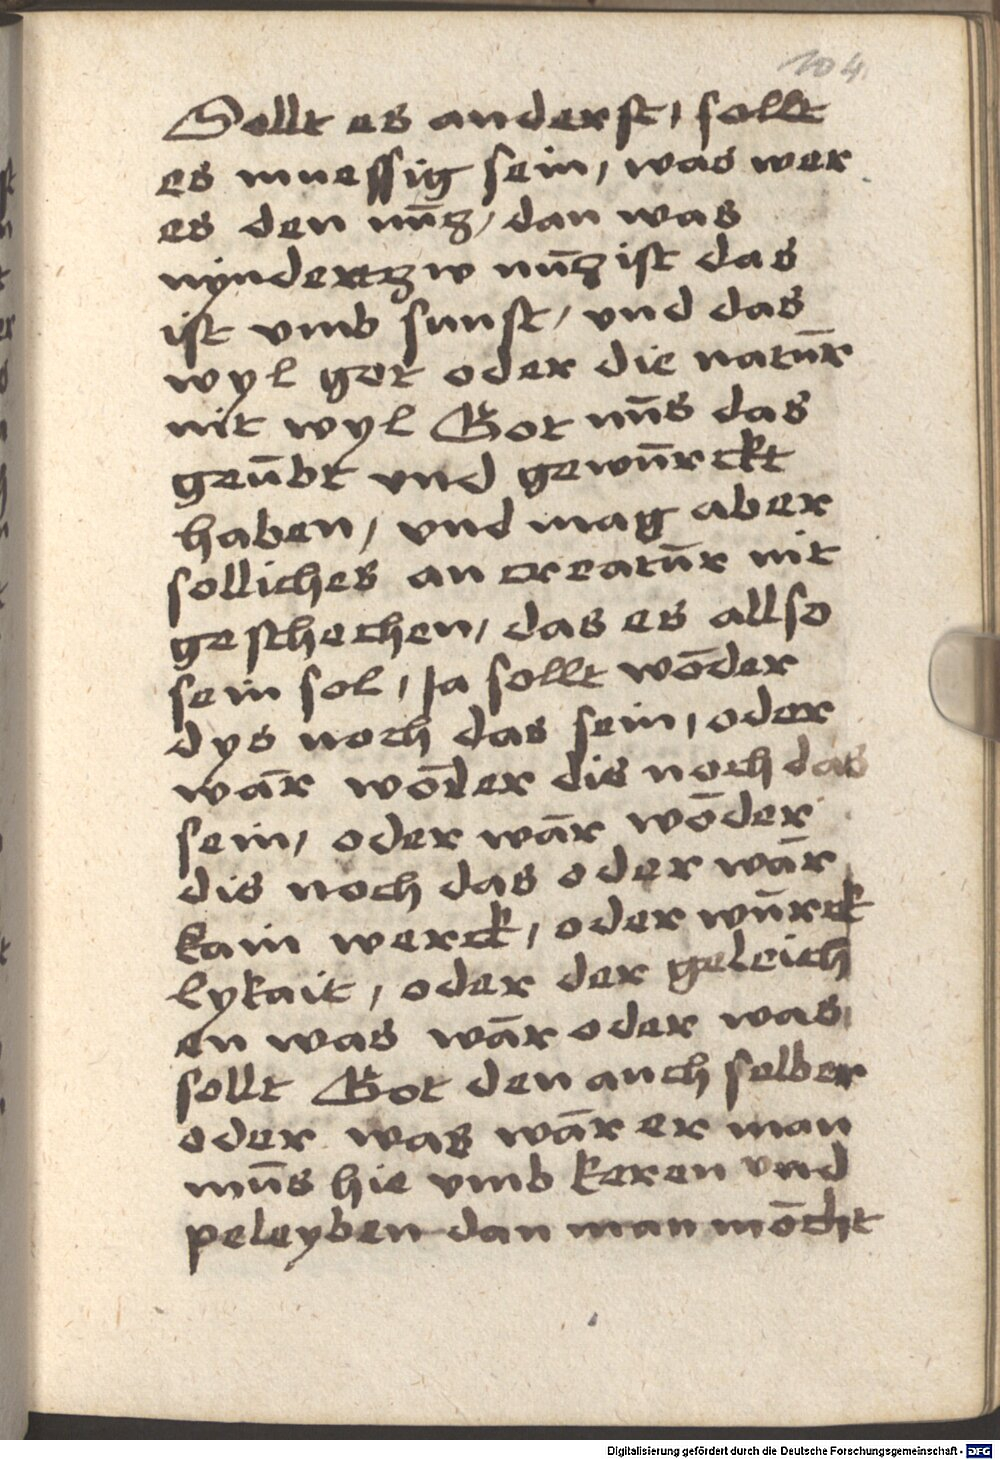 104
Sollt es anderst, sollt
es muessig sein, was wer
es den nūcz, dan was
nyndert zw nūcz ist das
ist vmb sunst, vnd das
wyl got oder die natūr
nit wyl Got mūs das
geūbt vnd gewūrckt
haben, vnd mag aber
solliches an creatūr nit
geschechen, das es allso
sein sol, Ja sollt wōder
dys noch das sein, oder
wār wōder dis noch das
sein, oder wār wōder
dis noch das oder wār
kain werck, oder wūrck
lykait, oder der geleich
en was wār oder was
sollt Got den auch selber
oder was wār er man
mūs hie vmb keren vnd
peleyben dan man mōcht
Digitalisierung gefördert durch die Deutsche Forschungsgemeinschaft - DFG